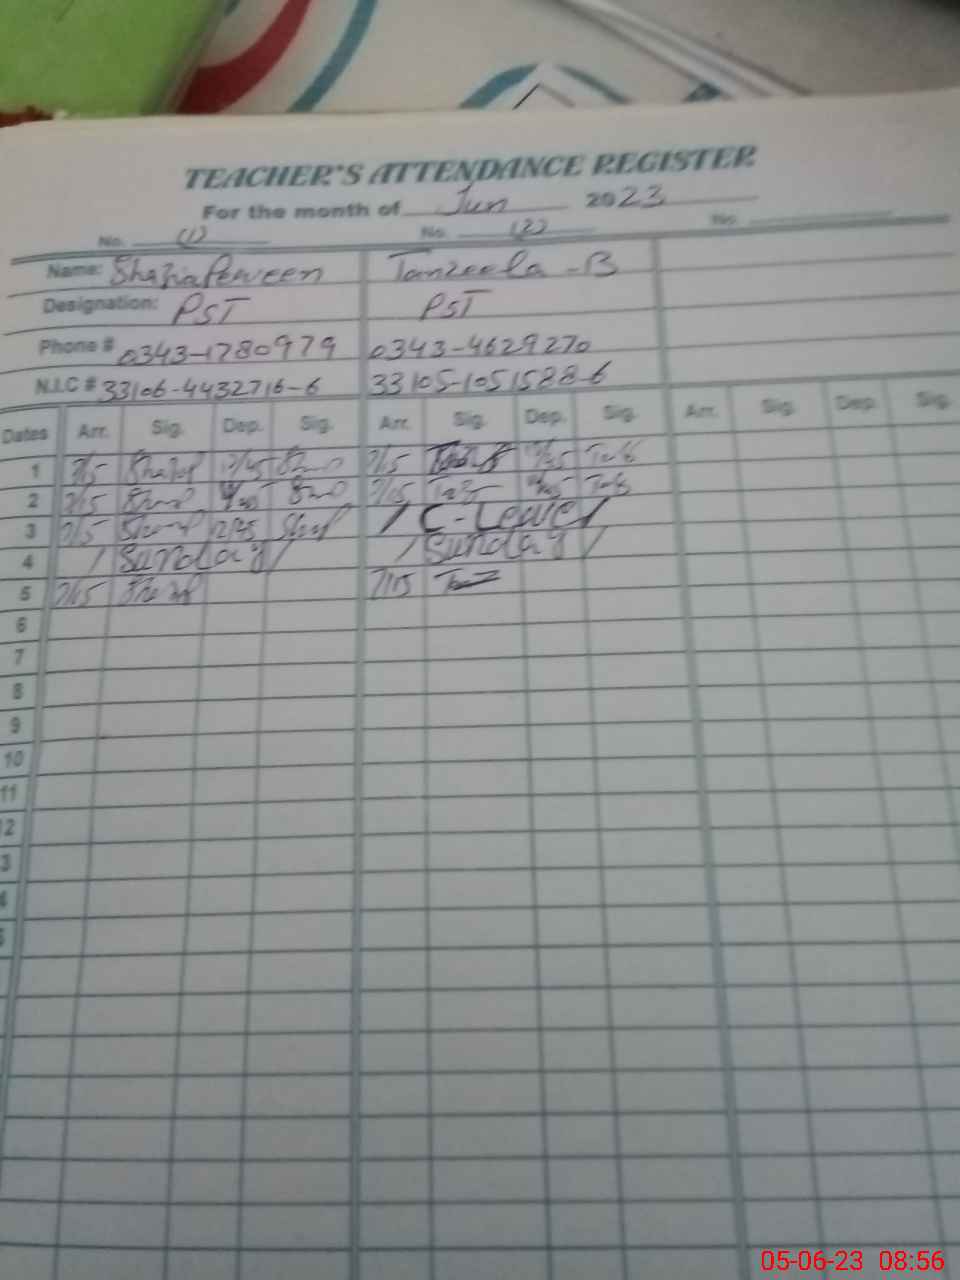 TEACHER'S ATTENDANCE REGISTER
For the month of Jun 2023
No. (1) No. (2) No.
Name: Shazia Perveen Tanzeela - B
Designation: PST PST
Phone # 0343-1780979 0343-4629270
N.I.C # 33106-4432716-6 33105-1051588-6
Dates Arr. Sig. Dep. Sig. Arr. Sig. Dep. Sig. Arr. Sig. Dep. Sig.
1 7/15 12/45 7/15 12/45
2 7/15 7/15
3 7/15 12/45 / C-Leave /
4 / Sunday / / Sunday /
5 7/15 7/15
6
7
8
9
10
11
2
3
05-06-23 08:56